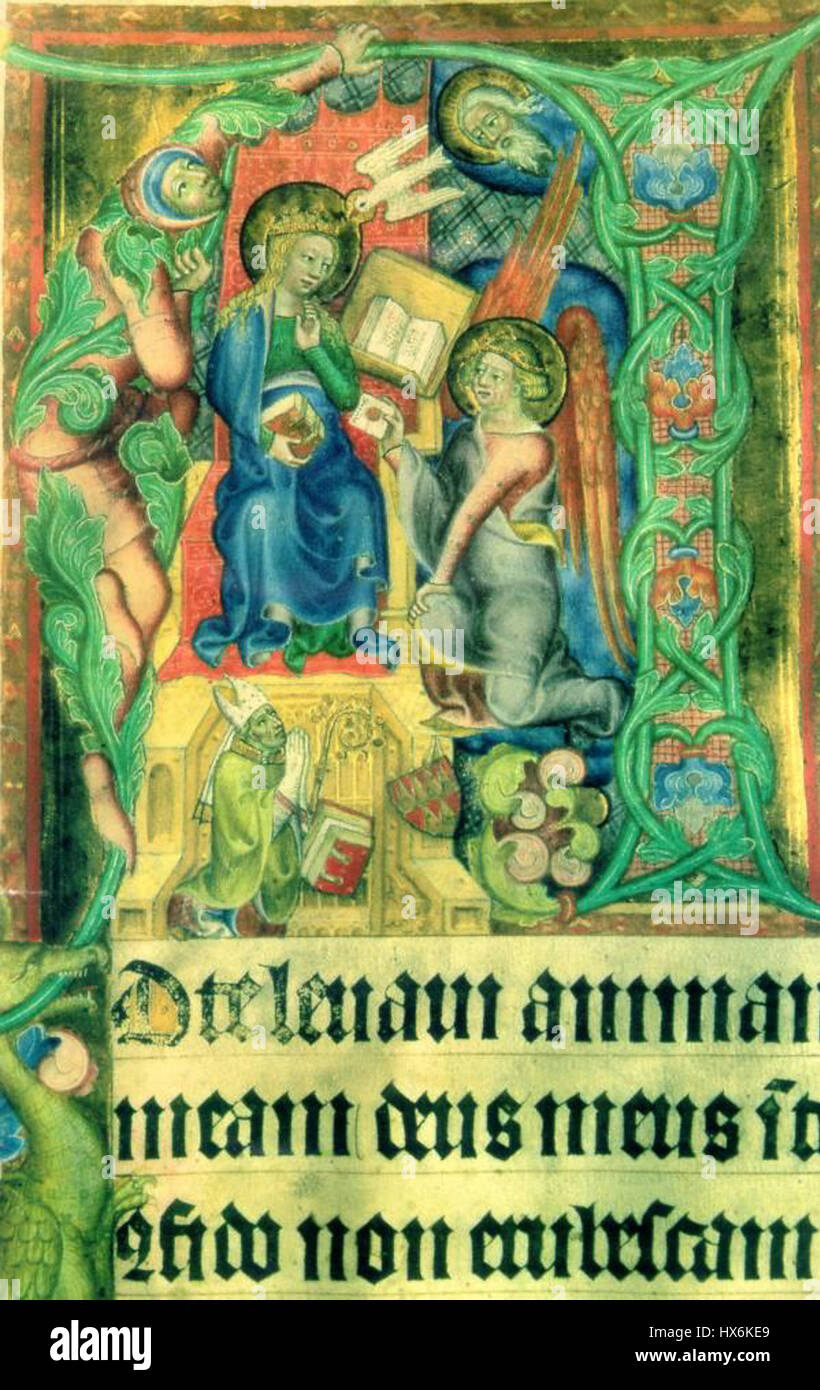 Dte leuaui animam
meam deus meus ī te
ꝯfido non erubescam
alamy stock photo
HX6KE9
www.alamy.com